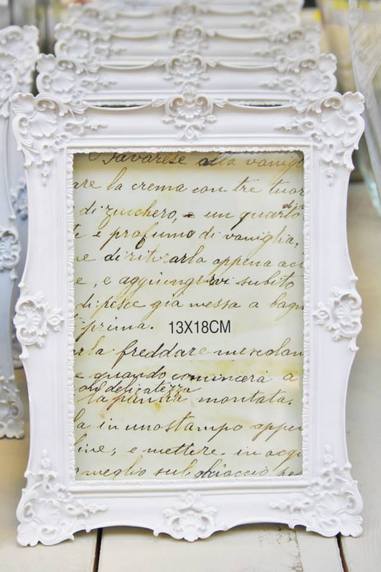 Bavarese alla vanigl
are la crema con tre tuor
di zucchero, e un quarto
e profumo di vaniglia,
e di ritirarla appena ac
e, e aggiungervi subito
di pesce già messa a bagn
prima.
13X18CM
rla freddare mescolan
e quando comincerà a
con delicatezza
la panna montata,
a in uno stampo appen
line, e mettere in acq
meglio sul ghiaccio pe